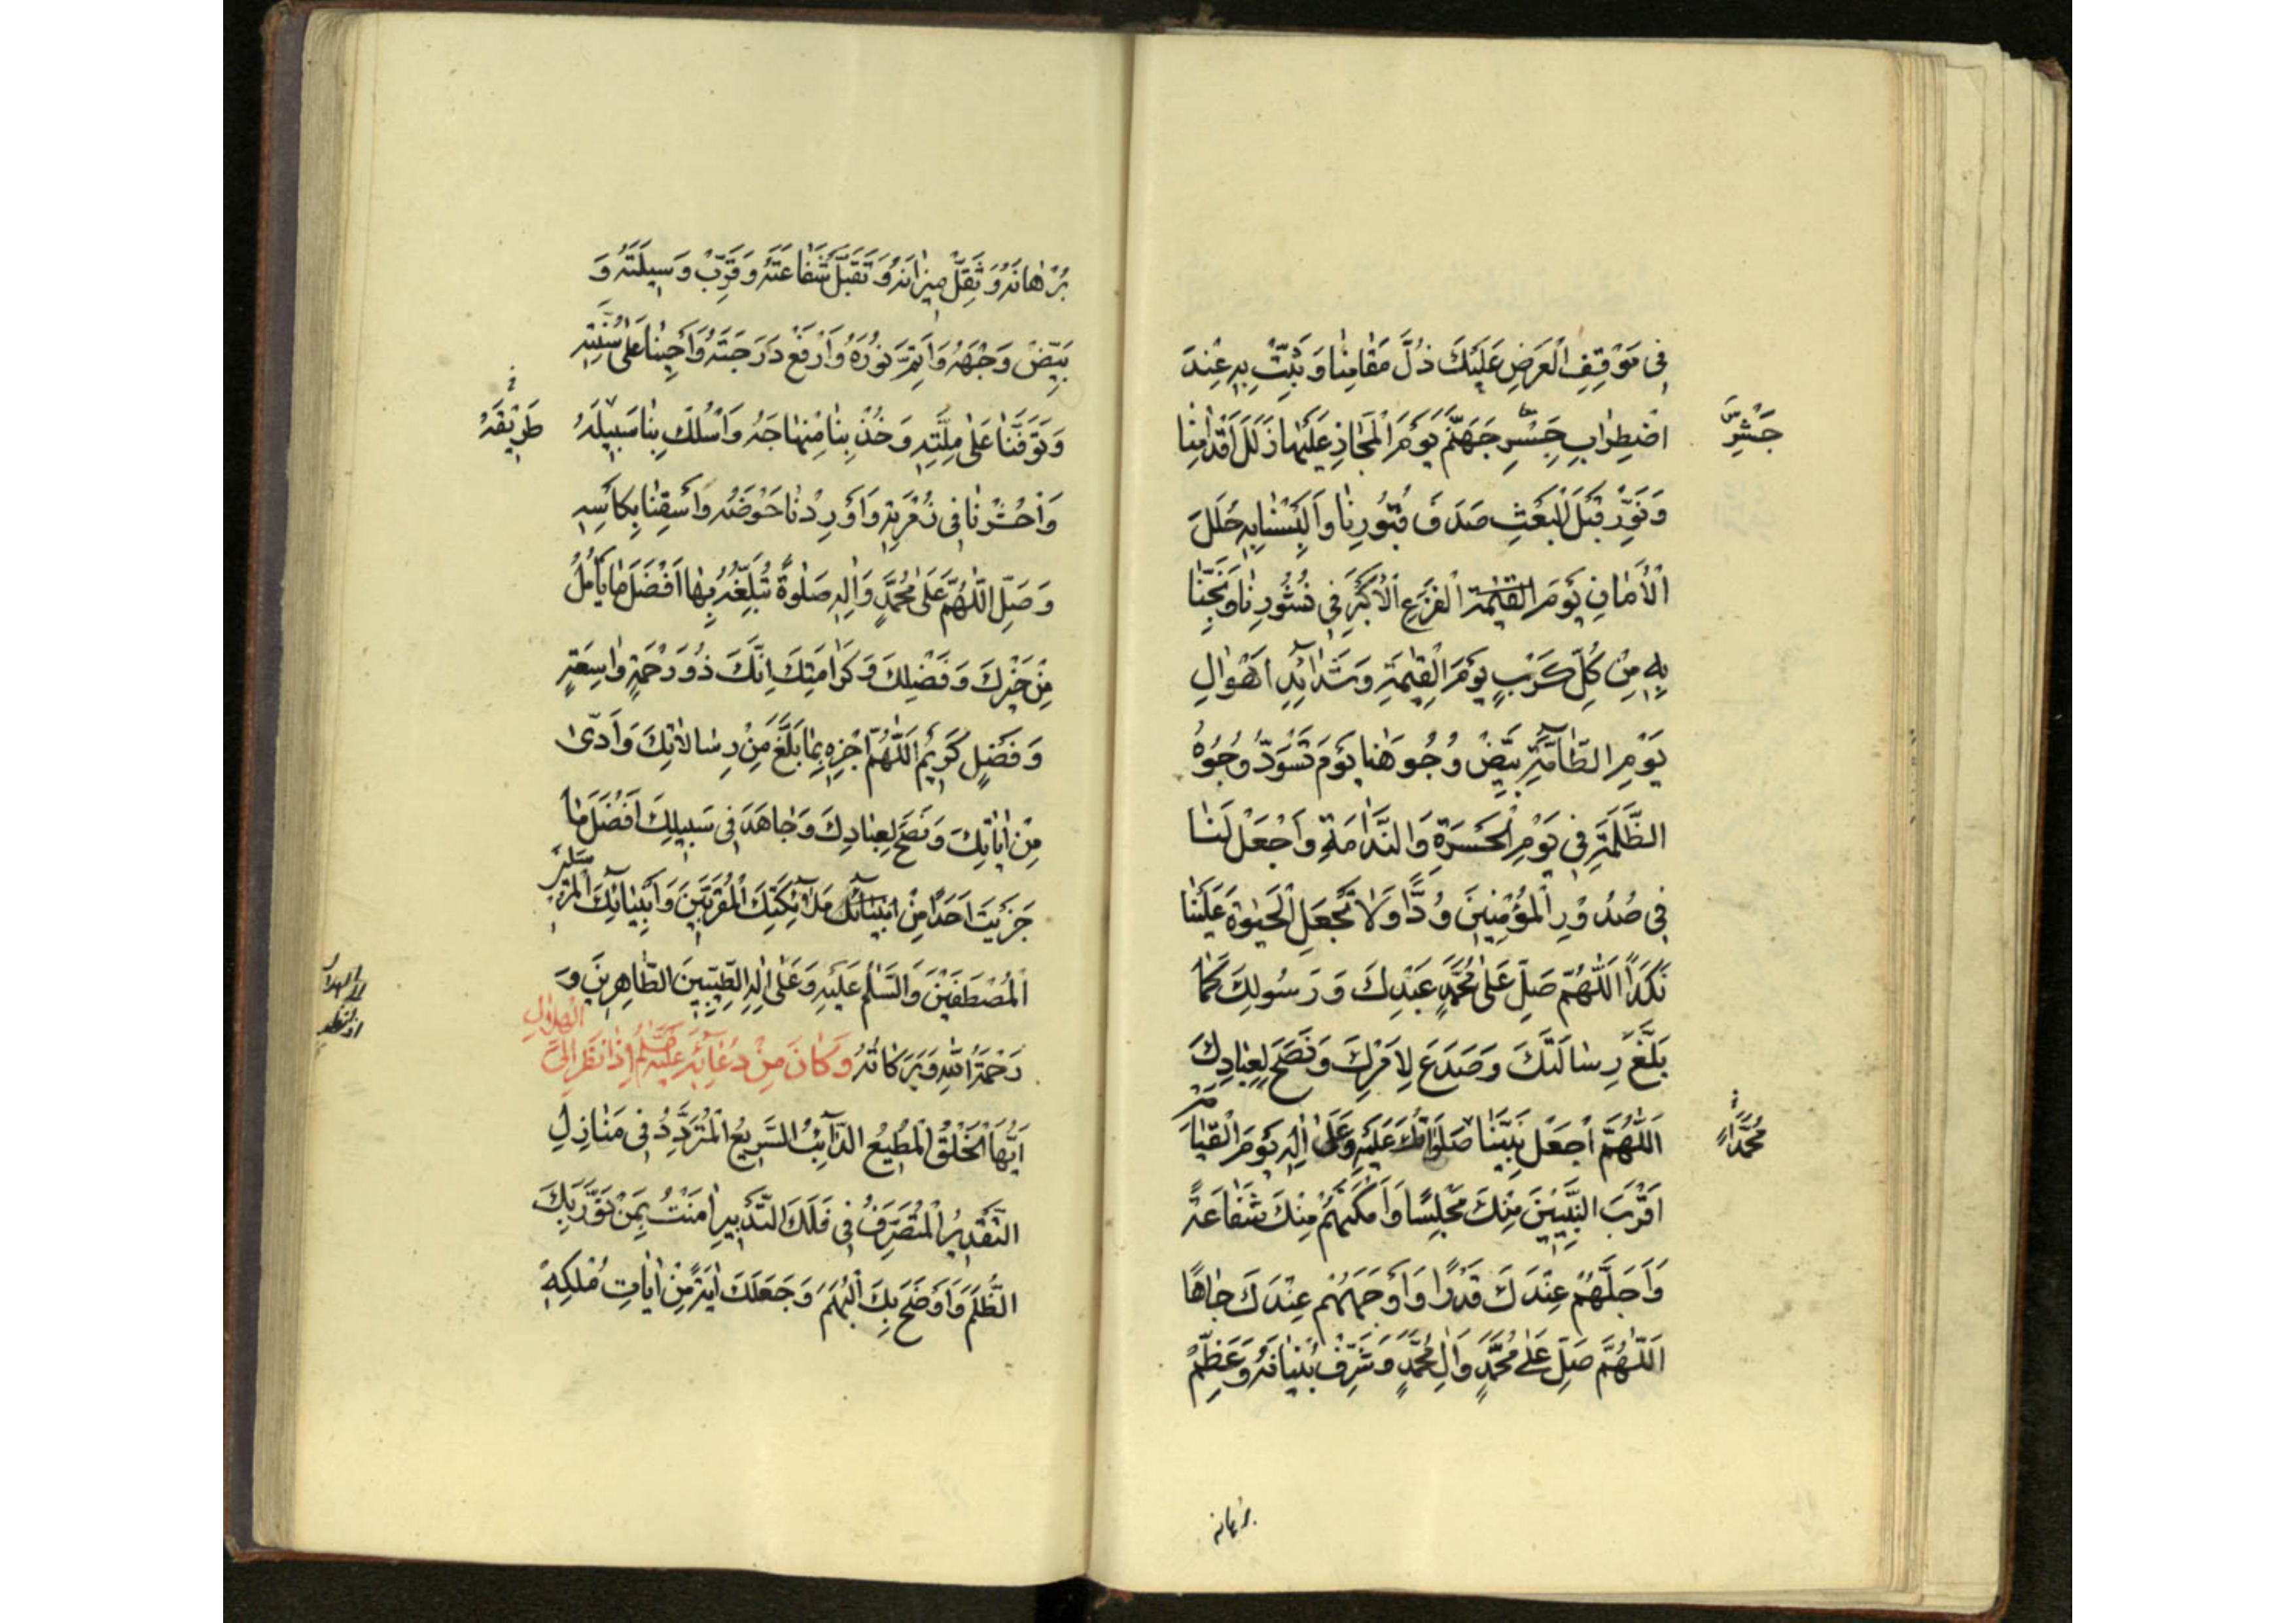 فِى مَوْقِفِ الْعَرْضِ عَلَيْكَ ذُلَّ مَقَامِنَا وَ ثَبِّتْ بِهِ عِنْدَ
اضْطِرَابِ جِسْرِ جَهَنَّمَ يَوْمَ الْمَجَازِ عَلَيْهَا زَلَلَ اَقْدَامِنَا
جَسْرِ
وَ نَوِّرْ قَبْلَ الْبَعْثِ صَدَفَ قُبُورِنَا وَ اَلْبِسْنَا بِهِ حُلَلَ
الْاَمَانِ يَوْمَ القيٰمة الْفَزَعِ الْاَكْبَرِ فِى نُشُورِنَا وَ نَجِّنَا
بِهِ مِنْ كُلِّ كَرْبٍ يَوْمَ الْقِيٰمَةِ وَ شَدَآئِدِ اَهْوَالِ
يَوْمِ الطَّآمَّةِ بَيِّضْ وُجُوهَنَا يَوْمَ تَسْوَدُّ وُجُوهُ
الظَّلَمَةِ فِى يَوْمِ الْحَسْرَةِ وَ النَّدَامَةِ وَ اجْعَلْ لَنَا
فِى صُدُورِ الْمُؤْمِنِينَ وُدًّا وَ لَا تَجْعَلِ الْحَيٰوةَ عَلَيْنَا
نَكَدًا اَللّٰهُمَّ صَلِّ عَلٰى مُحَمَّدٍ عَبْدِكَ وَ رَسُولِكَ كَمَا
بَلَّغَ رِسَالَتَكَ وَ صَدَعَ لِاَمْرِكَ وَ نَصَحَ لِعِبَادِكَ
اَللّٰهُمَّ اجْعَلْ نَبِيَّنَا صَلَوَاتُكَ عَلَيْهِ وَ عَلٰى اٰلِهِ يَوْمَ الْقِيَامَةِ
مُحَمَّدًا
اَقْرَبَ النَّبِيِّينَ مِنْكَ مَجْلِسًا وَ اَمْكَنَهُمْ مِنْكَ شَفَاعَةً
وَ اَجَلَّهُمْ عِنْدَكَ قَدْرًا وَ اَوْجَهَهُمْ عِنْدَكَ جَاهًا
اَللّٰهُمَّ صَلِّ عَلٰى مُحَمَّدٍ وَ اٰلِ مُحَمَّدٍ وَ شَرِّفْ بُنْيَانَهُ وَ عَظِّمْ
برهانه
بُرْهَانَهُ وَ ثَقِّلْ مِيزَانَهُ وَ تَقَبَّلْ شَفَاعَتَهُ وَ قَرِّبْ وَسِيلَتَهُ وَ
بَيِّضْ وَجْهَهُ وَ اَتِمَّ نُورَهُ وَ ارْفَعْ دَرَجَتَهُ وَ اَحْيِنَا عَلٰى سُنَّتِهِ
وَ تَوَفَّنَا عَلٰى مِلَّتِهِ وَ خُذْ بِنَا مِنْهَاجَهُ وَ اسْلُكْ بِنَا سَبِيلَهُ
طَرِيقَهُ
وَ احْشُرْنَا فِى زُمْرَتِهِ وَ اَوْرِدْنَا حَوْضَهُ وَ اسْقِنَا بِكَاْسِهِ
وَ صَلِّ اللّٰهُمَّ عَلٰى مُحَمَّدٍ وَ اٰلِهِ صَلٰوةً تُبَلِّغُهُ بِهَا اَفْضَلَ مَا يَاْمُلُ
مِنْ خَيْرِكَ وَ فَضْلِكَ وَ كَرَامَتِكَ اِنَّكَ ذُو رَحْمَةٍ وَاسِعَةٍ
وَ فَضْلٍ كَرِيمٍ اَللّٰهُمَّ اجْزِهِ بِمَا بَلَّغَ مِنْ رِسَالَاتِكَ وَ اَدّٰى
مِنْ اٰيَاتِكَ وَ نَصَحَ لِعِبَادِكَ وَ جَاهَدَ فِى سَبِيلِكَ اَفْضَلَ مَا
جَزَيْتَ اَحَدًا مِنْ انبيائك مَلَآئِكَتِكَ الْمُقَرَّبِينَ وَ اَنْبِيَآئِكَ الْمُرْسَلِينَ
الْمُصْطَفَيْنَ وَ السَّلٰمُ عَلَيْهِ وَ عَلٰى اٰلِهِ الطَّيِّبِينَ الطَّاهِرِينَ وَ
رَحْمَةُ اللّٰهِ وَ بَرَكَاتُهُ وَ كَانَ مِنْ دُعَآئِهِ عَلَيْهِ السَّلٰمُ اِذَا نَظَرَ اِلَى الْهِلَالِ
اَيُّهَا الْخَلْقُ الْمُطِيعُ الدَّآئِبُ السَّرِيعُ الْمُتَرَدِّدُ فِى مَنَازِلِ
التَّقْدِيرِ الْمُتَصَرِّفُ فِى فَلَكِ التَّدْبِيرِ اٰمَنْتُ بِمَنْ نَوَّرَ بِكَ
الظُّلَمَ وَ اَوْضَحَ بِكَ الْبُهَمَ وَ جَعَلَكَ اٰيَةً مِنْ اٰيَاتِ مُلْكِهِ